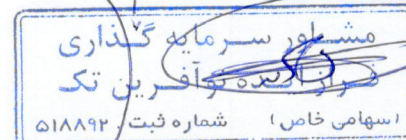 مشاور سرمایه گذاری
فراز ایده نوآفرین تک
(سهامی خاص) شماره ثبت ۵۱۸۸۹۲